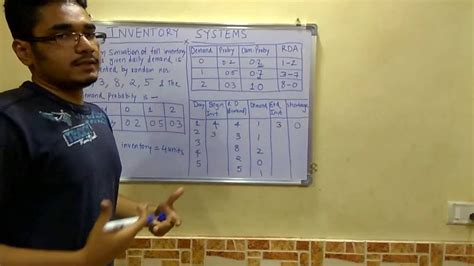 INVENTORY SYSTEMS
Simulation of foll inventory
given daily demand is
ented by random nos.
3, 8, 2, 5 & the
emand Probabity is -
0 1 2
0.2 0.5 0.3
inventory = 4 units
Demand Probty Cum. Probty RDA
0 0.2 0.2 1-2
1 0.5 0.7 3-7
2 0.3 1.0 8-0
Day Begin Inv. R.D (demand) Demand End Inv. Shortage
1 4 4 1 3 0
2 3 3 1
3 8 2
4 2 0
5 5 1